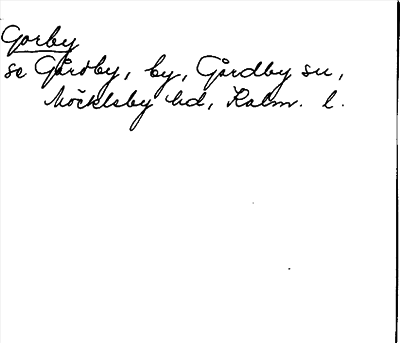 Gorby
se Gårdby, by, Gårdby sn,
Möcklsby hd, Kalm. l.